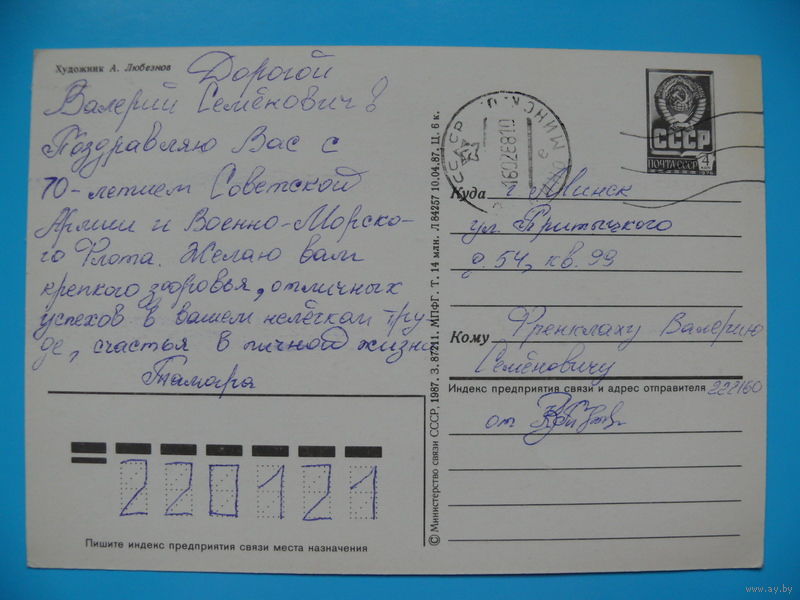 Художник А. Любезнов
Дорогой
Валерий Семёнович!
Поздравляю Вас с
70-летием Советской
Армии и Военно-Морско-
го Флота. Желаю вам
крепкого здоровья, отличных
успехов в вашем нелёгком тру
де, счастья в личной жизни
Тамара
220121
Пишите индекс предприятия связи места назначения
© Министерство связи СССР, 1987. З. 87211. МПФГ. Т. 14 млн. Л 84257 10.04.87. Ц. 6 к.
СССР
ПОЧТА СССР 4
СССР МИНСК
Куда г. Минск
ул. Притыцкого
д. 54, кв. 99
Кому Френклаху Валерию
Семёновичу
Индекс предприятия связи и адрес отправителя 222160
от
www.ay.by